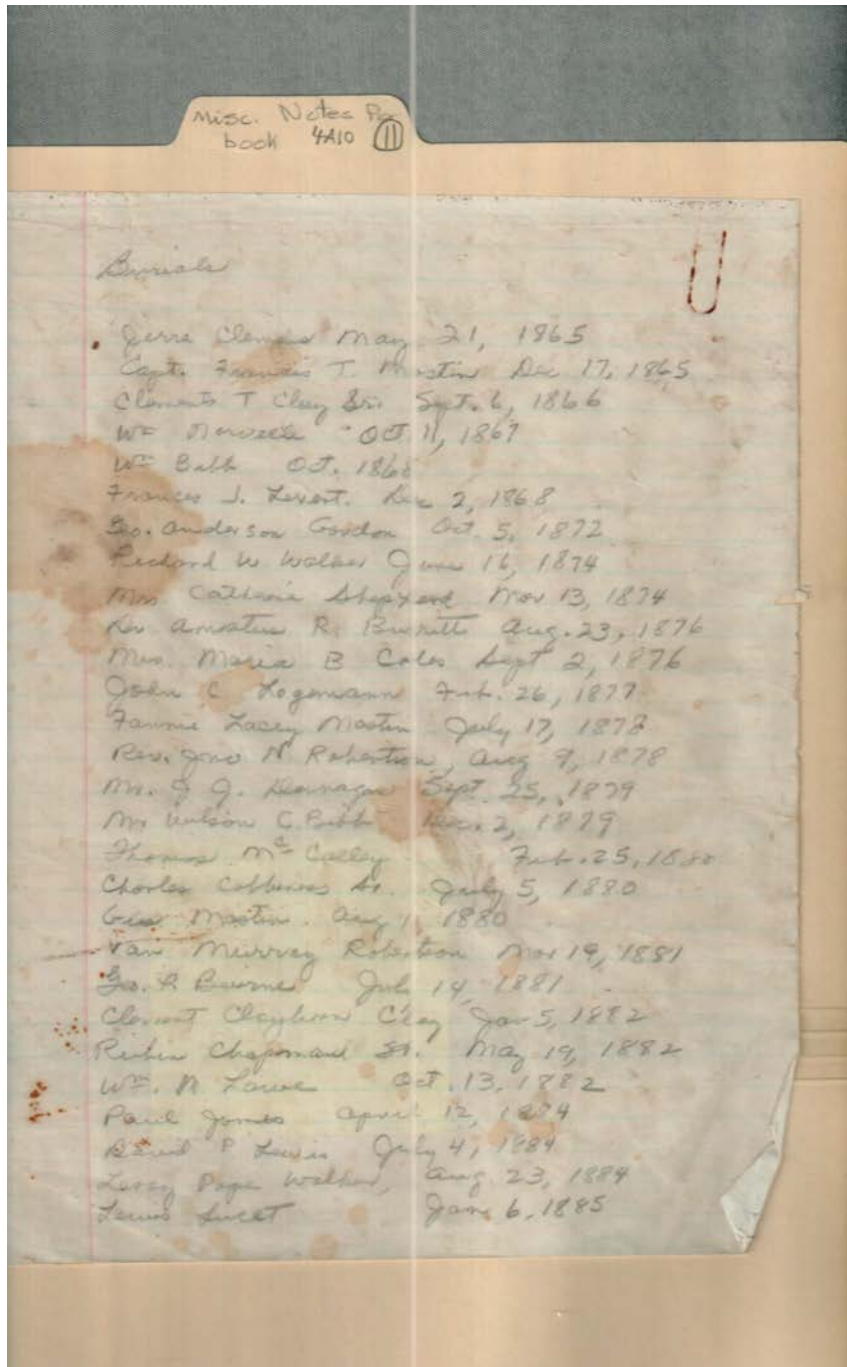 Misc. Notes
book 4A10 11
Burials
Jerre Clemens May 21, 1865
Capt. Francis T. Mastin Dec 17, 1865
Clements T Clay Sr. Sept. 6, 1866
Wm Oct 11, 1867
Wm Bibb Oct. 186
Frances J. Levert. Dec 2, 1868
Geo. Anderson Gordon Oct. 5, 1872
Richard W Walker June 16, 1874
Mrs Catherine Shepherd Nov 13, 1874
Dr R. Burritt Aug. 23, 1876
Mrs. Maria B Coles Sept 2, 1876
John C Logemann Feb. 26, 1877
Fannie Lacey Mastin July 17, 1878
Rev. Jno N Robertson, Aug 9, 1878
Mr. J J. Sept. 25, 1879
Mr Wilson C. Bibb Dec. 2, 1879
Thomas Mc Calley Feb. 25, 1880
Charles July 5, 1880
Gus Mastin. Aug 1, 1880
Van Murray Robertson Mar 19, 1881
Geo. P Beirne July 14, 1881
Clement Clayborn Clay Jan 5, 1882
Ruben Chapman Sr. May 19, 1882
Wm. M Lowe Oct. 13, 1882
Paul Jones April 12, 1884
David P Lewis July 4, 1884
Leroy Pope Walker, Aug. 23, 1884
Lewis Jan. 6, 1885